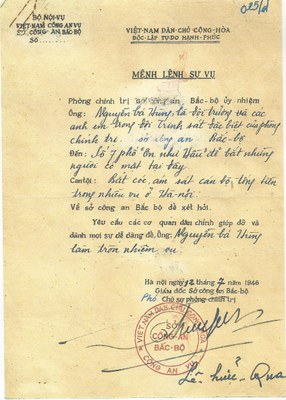 BỘ NỘI-VỤ
VIỆT-NAM CÔNG AN VỤ
SỞ CÔNG AN BẮC-BỘ
SỐ
VIỆT-NAM DÂN-CHỦ CỘNG-HÒA
ĐỘC-LẬP TỰ DO HẠNH-PHÚC
MỆNH LỆNH SỰ VỤ
Phòng chính trị sở công an Bắc-bộ ủy nhiệm
Ông: Nguyễn bá Hùng là đội trưởng và các
anh em trong đội trinh sát đặc biệt của phòng
chính trị. sở công an Bắc-bộ
Đến: Số 7 phố "Ôn như Hầu" để bắt những
người có mặt tại đây
Can tội: Bắt cóc, ám sát cán bộ, tống tiền
trong nhiều vụ ở Hà-nội.
Về sở công an Bắc bộ để xét hỏi.
Yêu cầu các cơ quan dân chính giúp đỡ và
dành mọi sự dễ dàng để ông: Nguyễn bá Hùng
làm tròn nhiệm vụ.
Hà nội ngày 12 tháng 7 năm 1946
Giám đốc Sở công an Bắc-bộ
Phó Chủ sự phòng chính trị
VIỆT-NAM DÂN-CHỦ CỘNG-HÒA
SỞ
CÔNG-AN
BẮC-BỘ
CÔNG AN VỤ